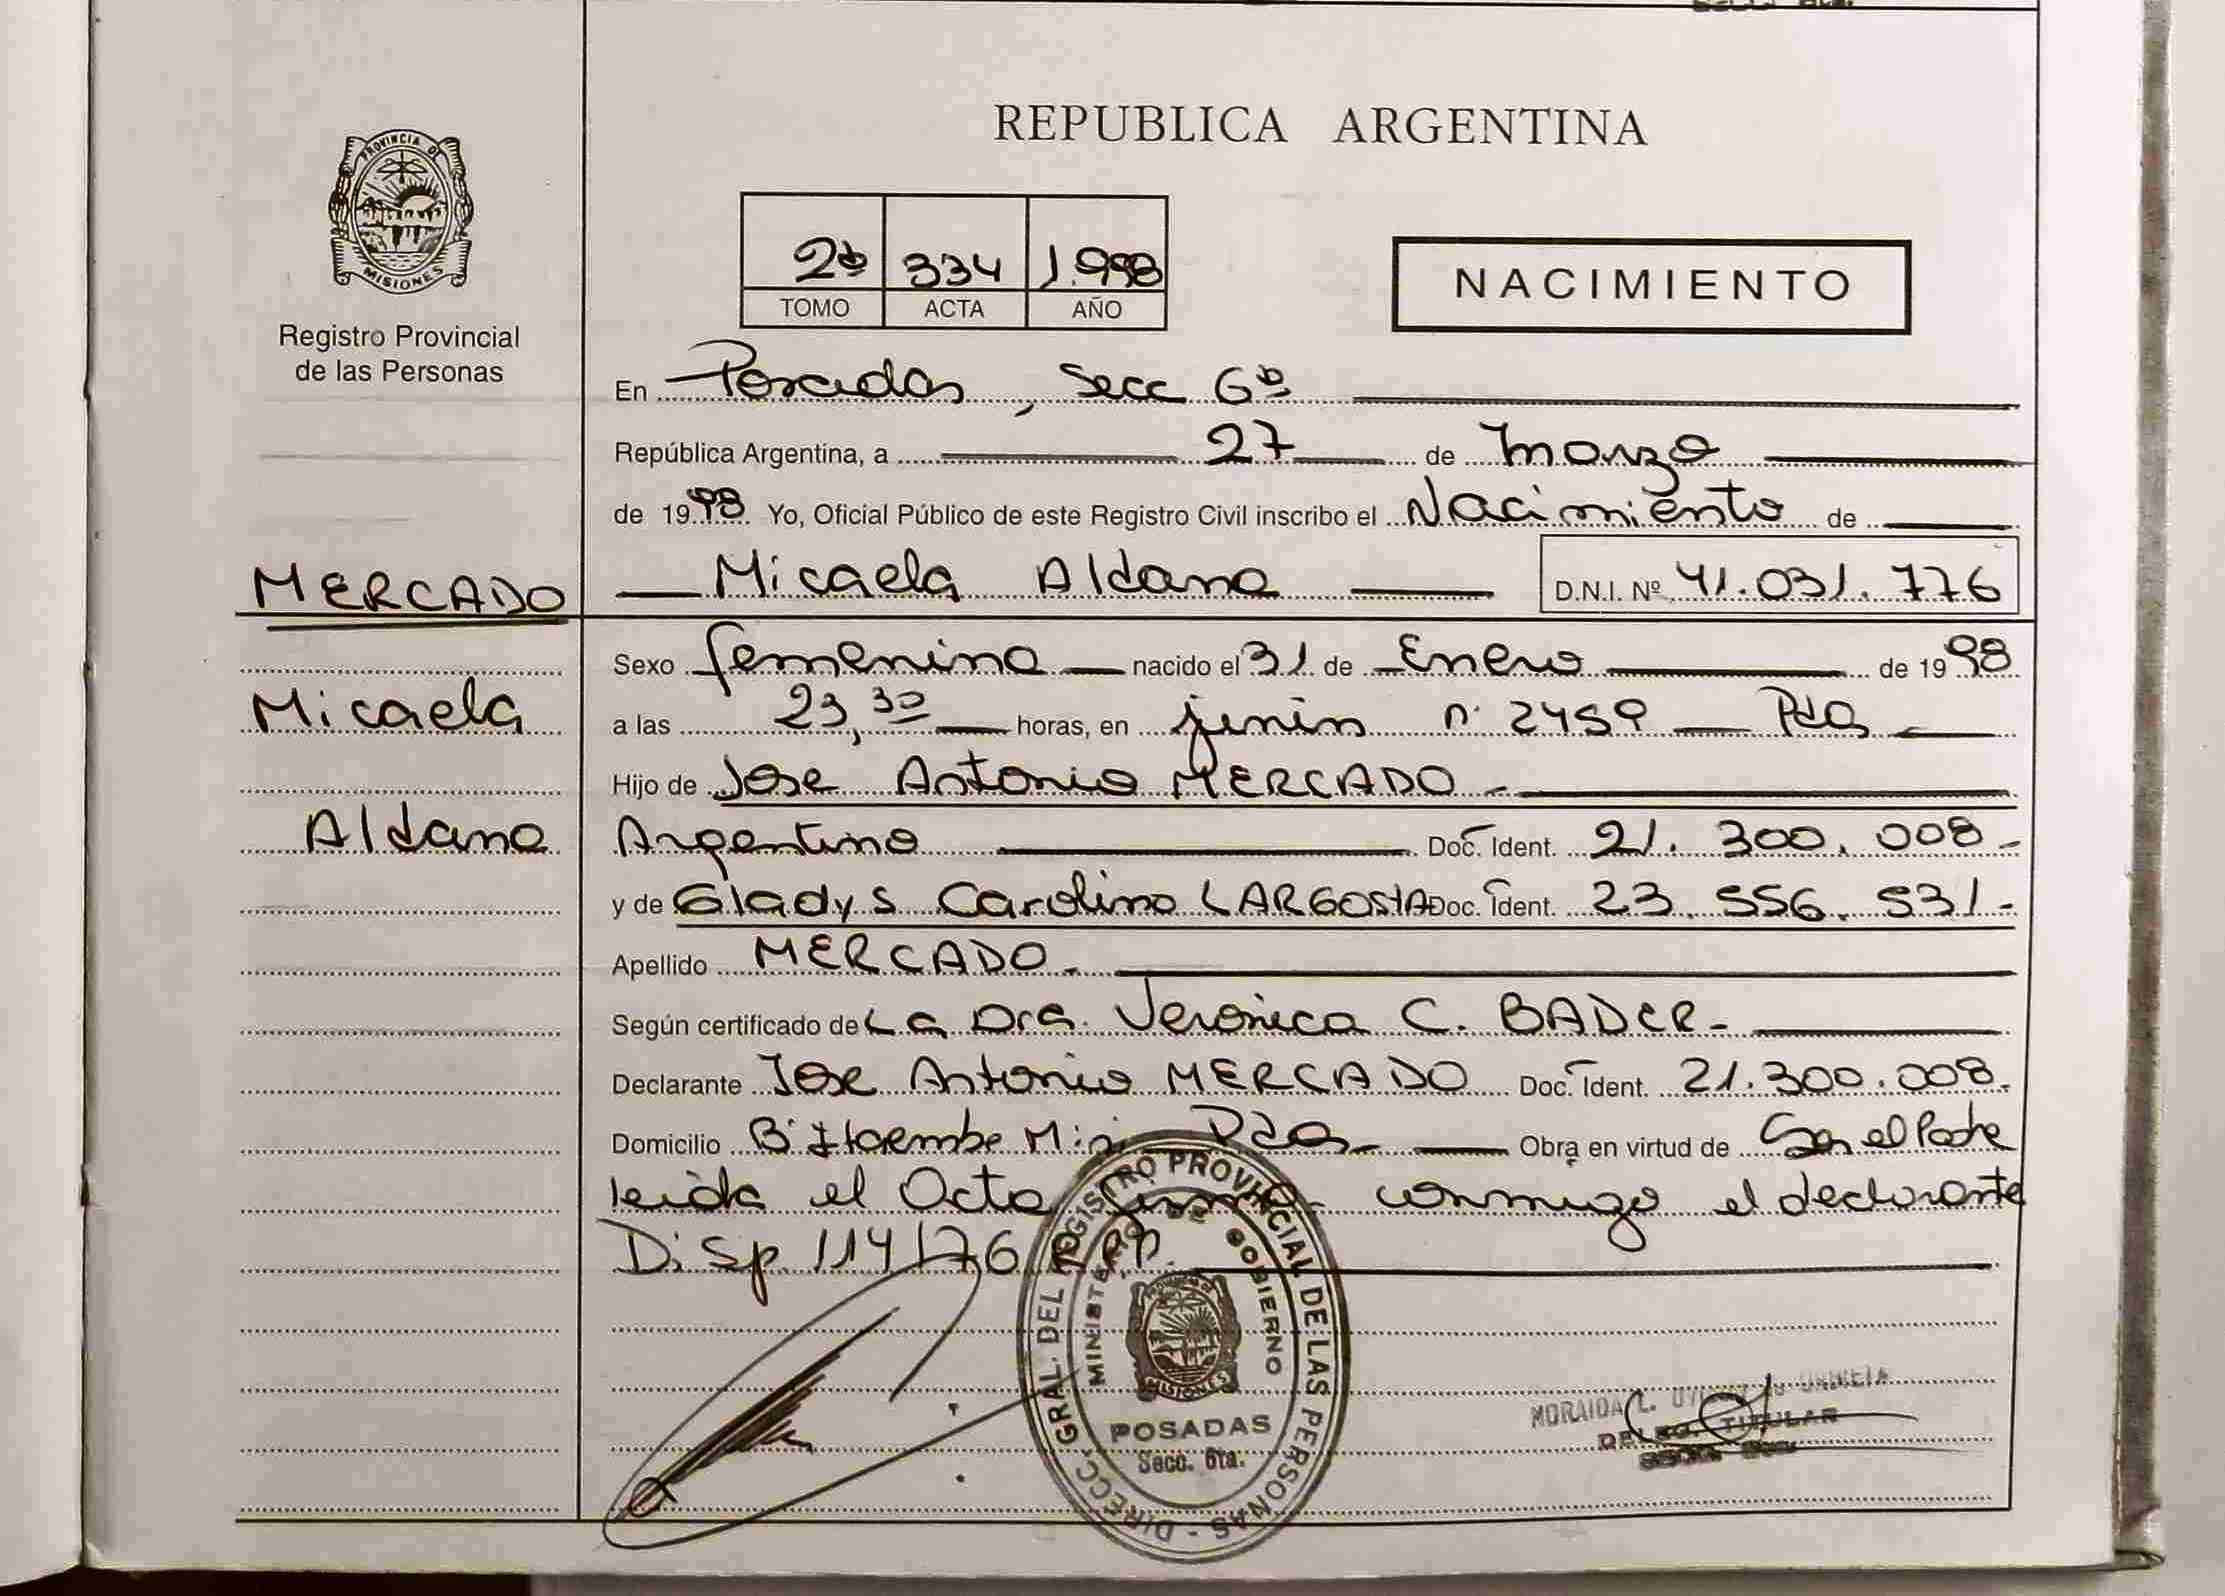 REPUBLICA ARGENTINA
PROVINCIA DE
MISIONES
Registro Provincial
de las Personas
2º 334 1.998
TOMO ACTA AÑO
NACIMIENTO
En Posadas, Secc 6ª
República Argentina, a 27 de Marzo
de 1998 Yo, Oficial Público de este Registro Civil inscribo el Nacimiento de
MERCADO
Micaela Aldana D.N.I. Nº 41.031.776
Sexo femenino nacido el 31 de Enero de 1998
Micaela
a las 23,30 horas, en junin nº 2459 Pdas
Hijo de Jose Antonio MERCADO
Aldana
Argentino Doc. Ident. 21.300.008
y de Gladys Carolina LARGOSTA Doc. Ident. 23.556.531
Apellido MERCADO
Según certificado de La Dra. Veronica C. BADER
Declarante Jose Antonio MERCADO Doc. Ident. 21.300.008
Domicilio Bº Itaembe Mini Pdas Obra en virtud de Ser el Padre
leida el Acta firma conmigo el declarante
Disp. 114/76
DIRECC. GRAL. DEL REGISTRO PROVINCIAL DE LAS PERSONAS
MINISTERIO DE GOBIERNO
MISIONES
POSADAS
Secc. 6ta.
MORAIDA L.
DELEG. TITULAR